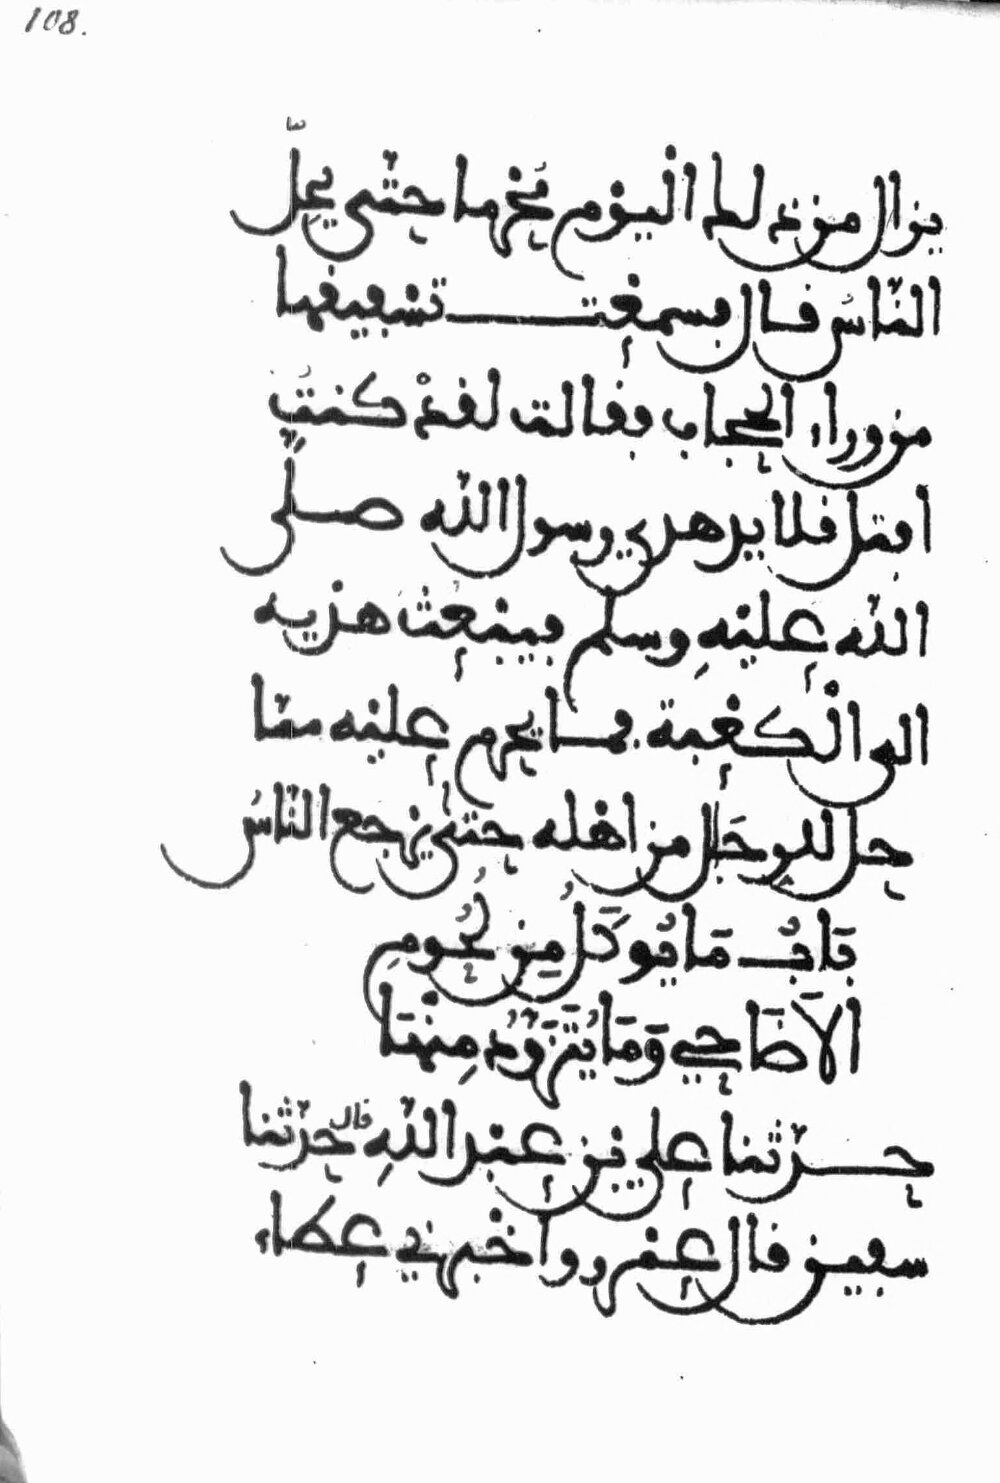 108.
يزال من ذلك اليوم محرما حتى يحل
الناس قال فسمعت تصفيقها
من وراء الحجاب فقالت لقد كنت
افتل قلايد هدي رسول الله صلى
الله عليه وسلم فيبعث هديه
الى الكعبة فما يحرم عليه مما
حل للرجل من اهله حتى يرجع الناس
بَابُ مَا يُوكَلُ مِن لُحُومِ
الاَضَاحِي وَمَا يُتَزَوَّدُ مِنْهَا
حدثنا علي بن عبد الله قال حدثنا
سفين قال عمرو واخبرني عطاء